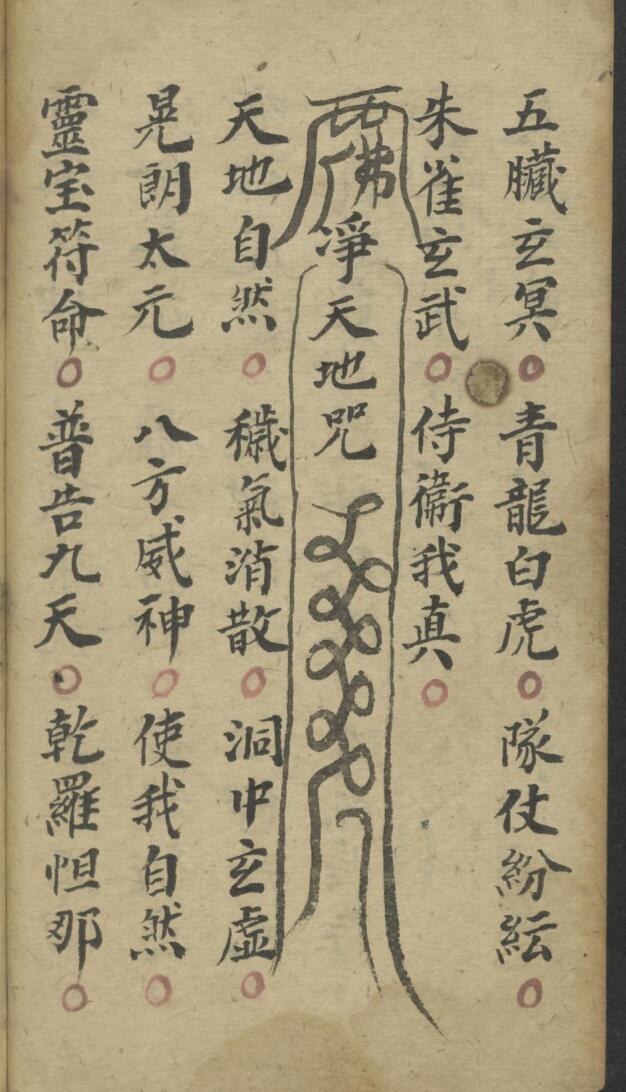 五臟玄冥○青龍白虎○隊仗紛紜○
朱雀玄武○侍衞我真○
西佛
淨天地咒
天地自然○穢氣消散○洞中玄虛○
晃朗太元○八方威神○使我自然○
靈宝符命○普告九天○乾羅怛那○